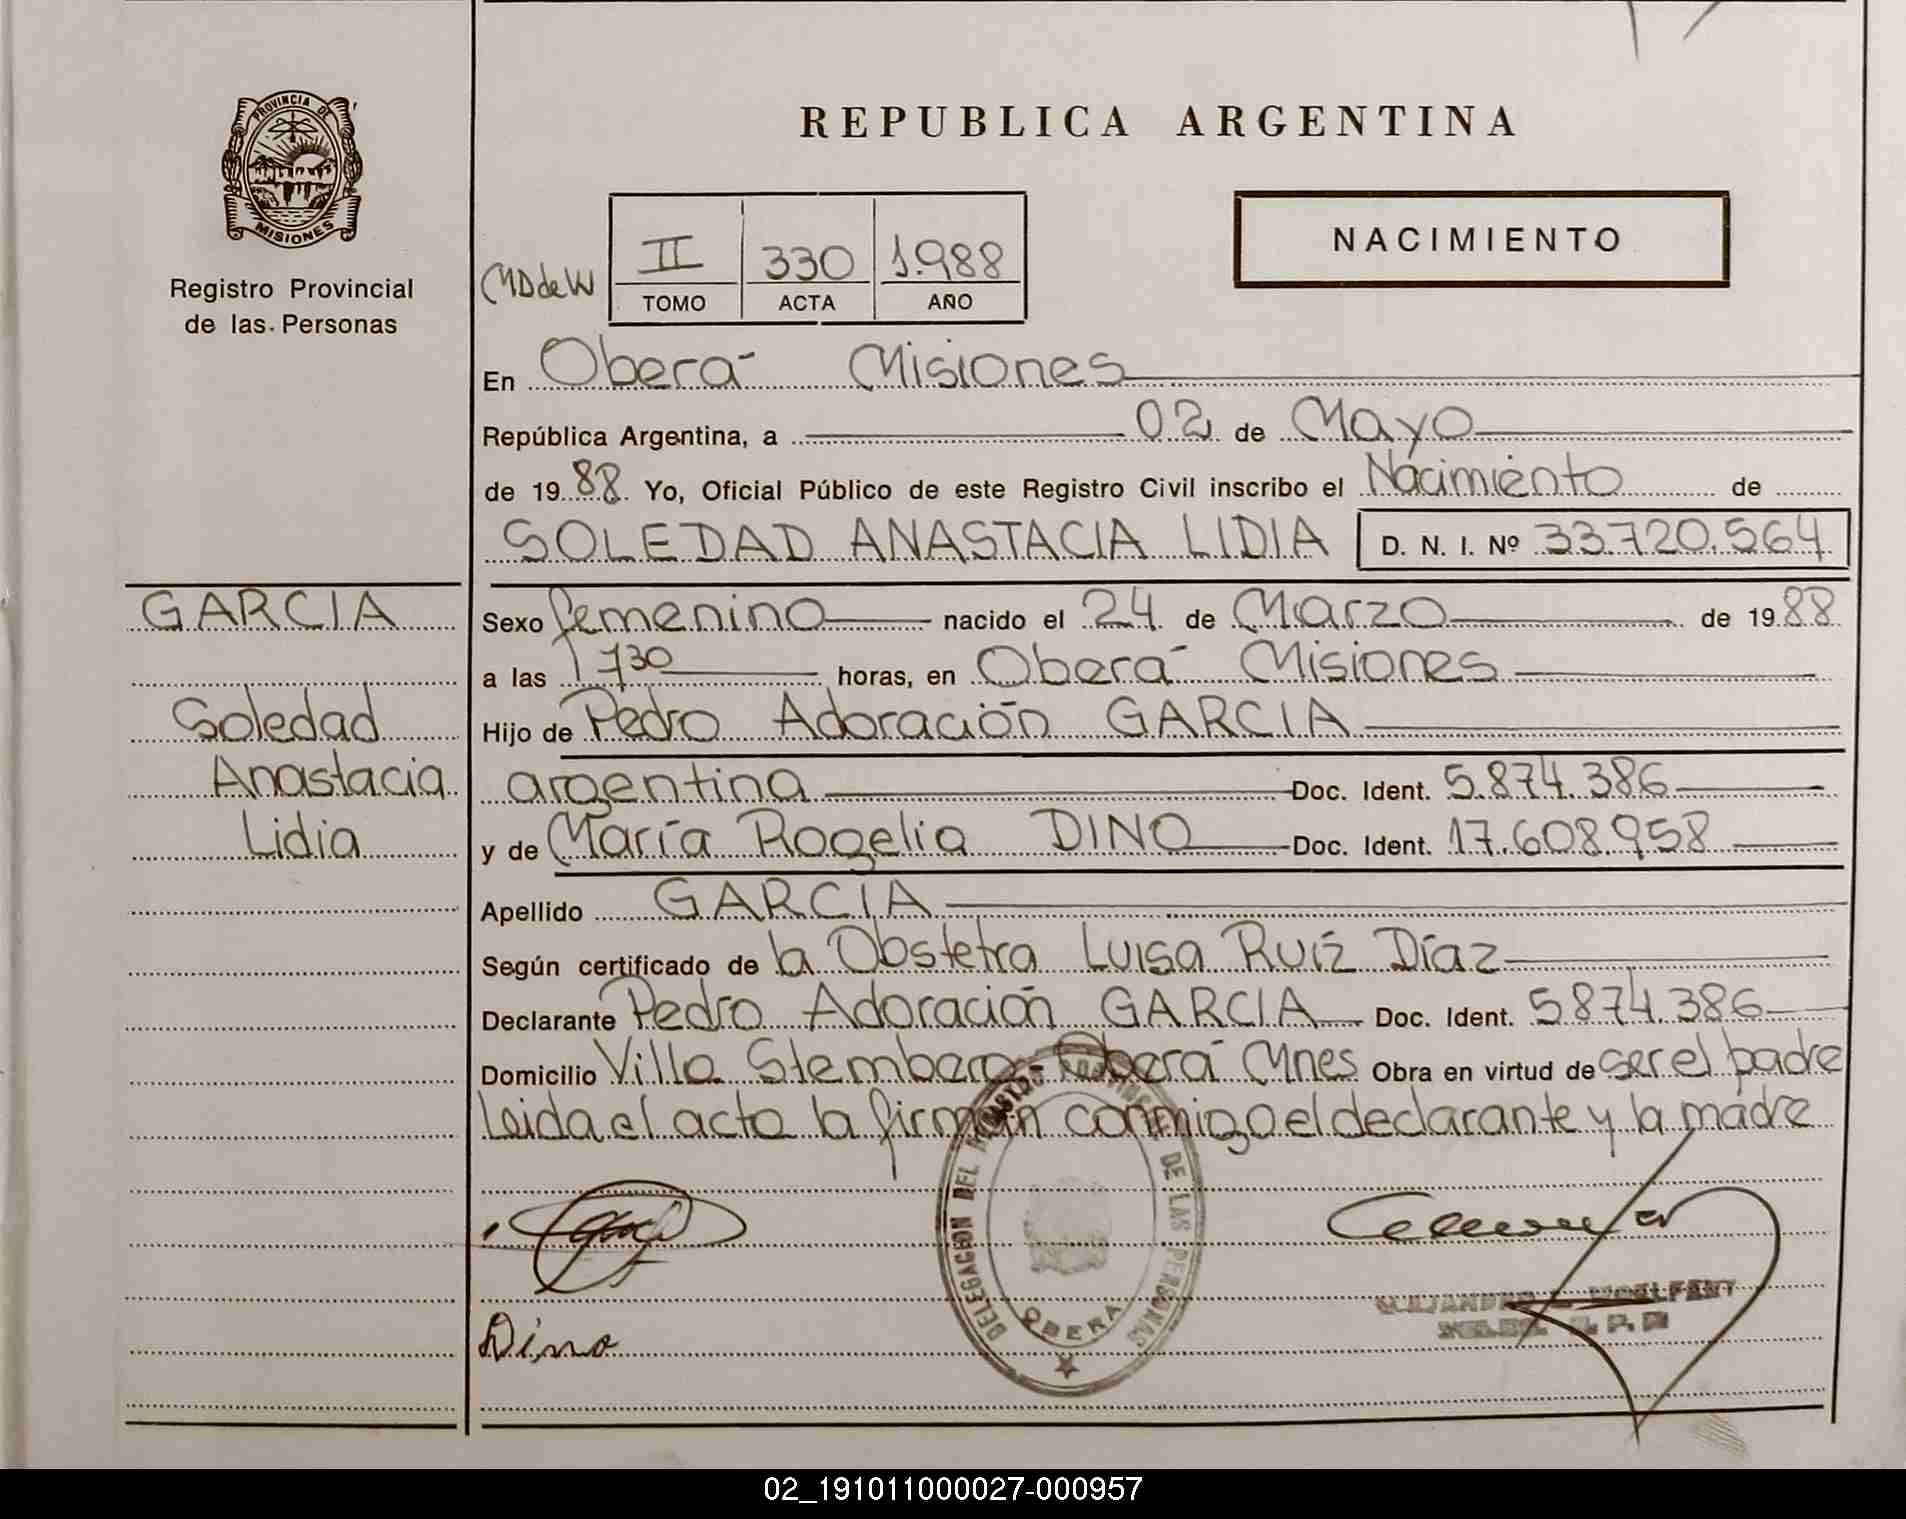 PROVINCIA DE
MISIONES
Registro Provincial
de las Personas
REPUBLICA ARGENTINA
NACIMIENTO
MD de W
II 330 1.988
TOMO ACTA AÑO
En Oberá Misiones
República Argentina, a 02 de Mayo
de 19 88 Yo, Oficial Público de este Registro Civil inscribo el Nacimiento de
SOLEDAD ANASTACIA LIDIA D. N. I. Nº 33.720.564
GARCIA
Soledad
Anastacia
Lidia
Sexo femenino nacido el 24 de Marzo de 19 88
a las 1730 horas, en Oberá Misiones
Hijo de Pedro Adoración GARCIA
argentina Doc. Ident. 5.874.386
y de María Rogelia DINO Doc. Ident. 17.608.958
Apellido GARCIA
Según certificado de la Obstetra Luisa Ruíz Díaz
Declarante Pedro Adoración GARCIA Doc. Ident. 5874.386
Domicilio Villa Stemberg - Oberá Mnes Obra en virtud de ser el padre
Leida el acta la firman conmigo el declarante y la madre
DELEGACION DEL REGISTRO PROVINCIAL DE LAS PERSONAS
OBERA
Dino
02_191011000027-000957